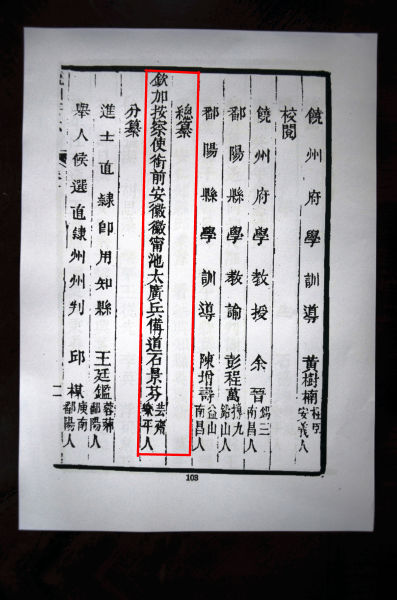 饒州府學訓導　黃樹楠　安義人
校閱
饒州府學教授　余晉　錫三　南昌人
鄱陽縣學教諭　彭程萬　摶九　鉛山人
鄱陽縣學訓導　陳增壽　益山　南昌人
總纂
欽加按察使銜前安徽徽甯池太廣兵備道石景芬　芸齋　樂平人
分纂
進士直隸即用知縣　王廷鑑　蓉湖　鄱陽人
舉人候選直隸州州判　邱楳　庚南　鄱陽人
103